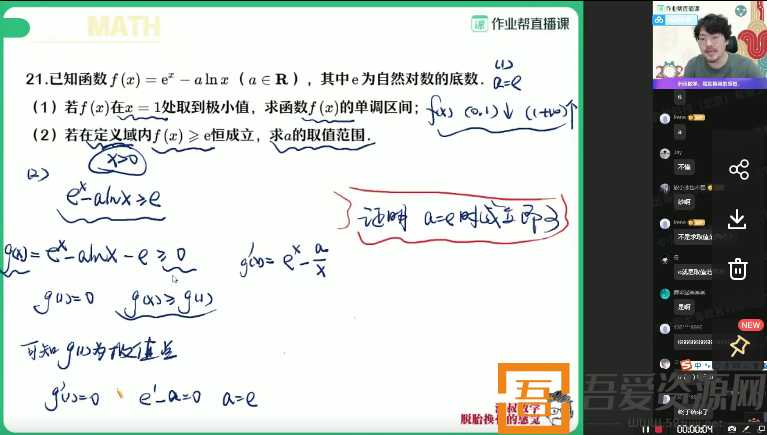 MATH
作业帮直播课
21.已知函数f(x)=eˣ-a ln x（a∈R），其中e为自然对数的底数．
(1)
a=e
（1）若f(x)在x=1处取到极小值，求函数f(x)的单调区间；
f(x) (0,1)↓ (1,+∞)↑
（2）若在定义域内f(x)⩾e恒成立，求a的取值范围．
x>0
(2)
eˣ-alnx≥e
证明 a=e时成立即可
g(x)=eˣ-alnx-e≥0
g'(x)=eˣ-a/x
g(1)=0 g(x)≥g(1)
可知g(1)为极值点
g'(1)=0 e¹-a=0 a=e
脱胎换骨的感觉
吾爱资源网
作业帮直播课
a
不懂
妙啊
不是求取值
是啊
NEW
00:00:04